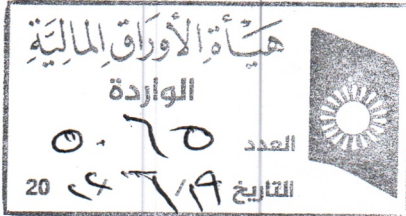 هَيْأَةِ الأَوْرَاقِ المَالِيَّةِ
الواردة
العدد ٥٠٦٥
التاريخ / / 20